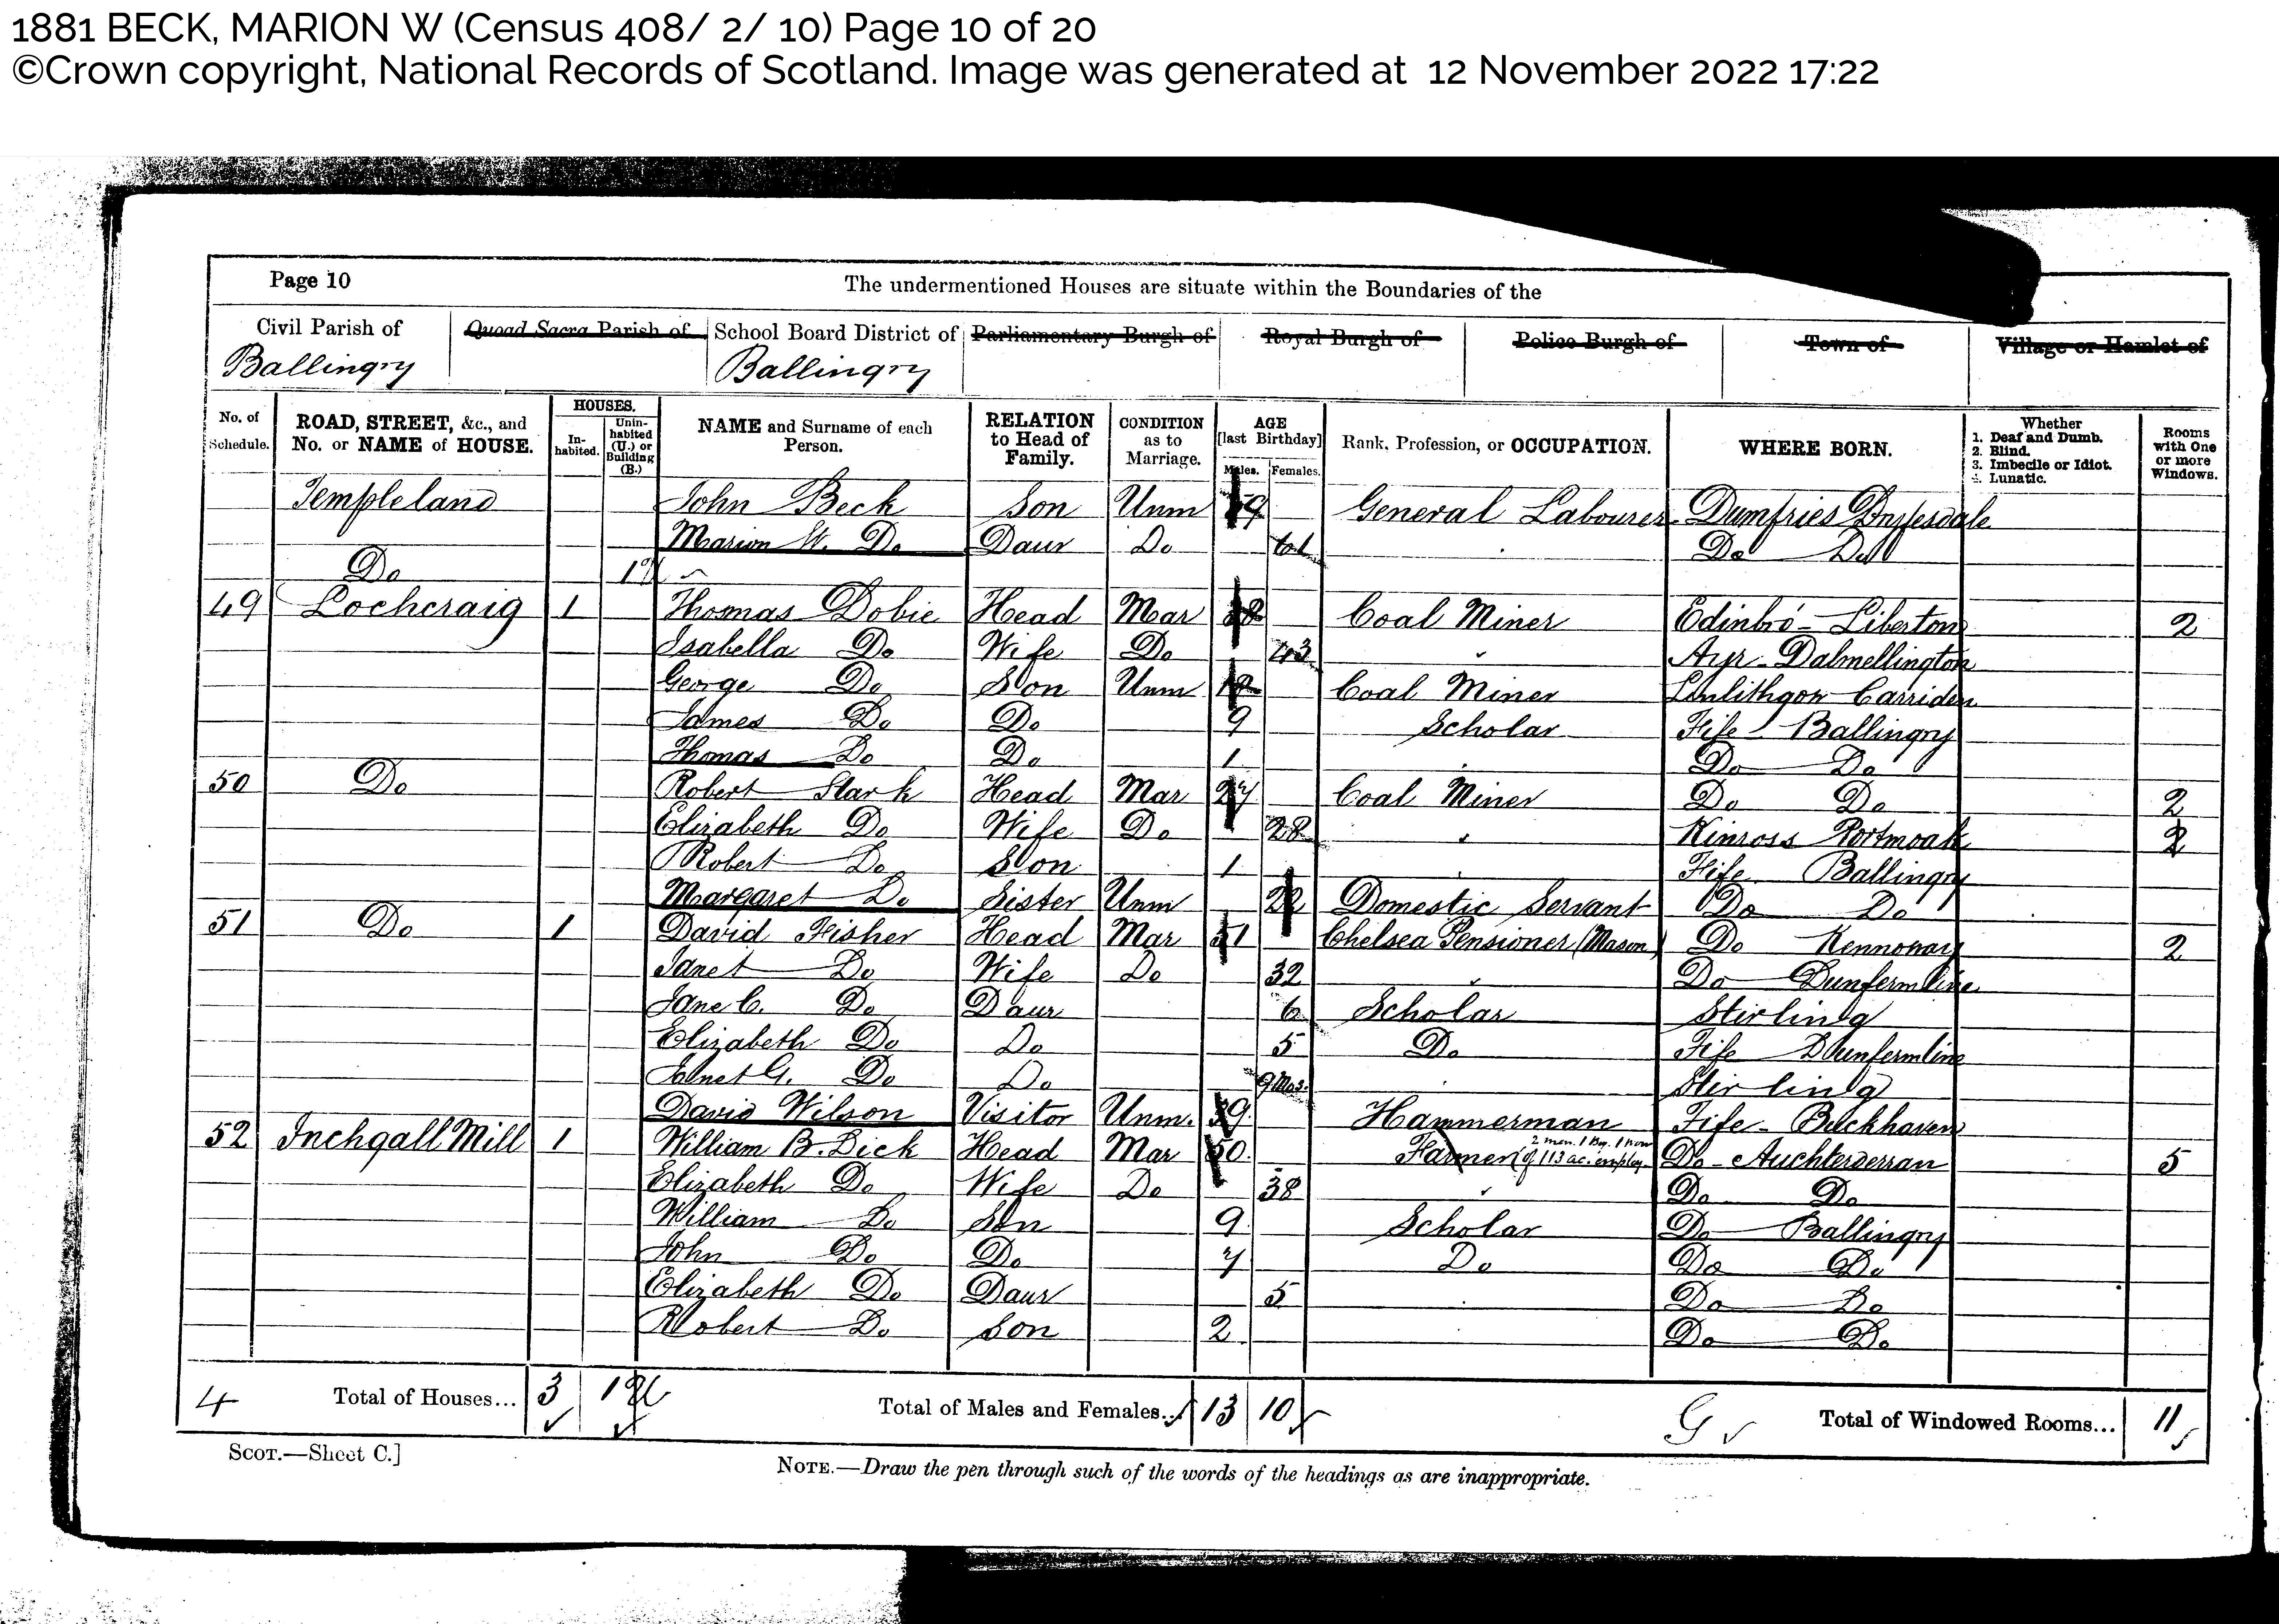 1881 BECK, MARION W (Census 408/ 2/ 10) Page 10 of 20
©Crown copyright, National Records of Scotland. Image was generated at 12 November 2022 17:22
Page 10 The undermentioned Houses are situate within the Boundaries of the
Civil Parish of Quoad Sacra Parish of School Board District of Parliamentary Burgh of Royal Burgh of Police Burgh of Town of Village or Hamlet of
Ballingry Ballingry
No. of Schedule. ROAD, STREET, &c., and No. or NAME of HOUSE. HOUSES. In-habited. Unin-habited (U.) or Building (B.) NAME and Surname of each Person. RELATION to Head of Family. CONDITION as to Marriage. AGE [last Birthday] Males. Females. Rank, Profession, or OCCUPATION. WHERE BORN. Whether 1. Deaf and Dumb. 2. Blind. 3. Imbecile or Idiot. 4. Lunatic. Rooms with One or more Windows.
Templeland John Beck Son Unm General Labourer Dumfries
Marion W. Do Daur Do Do Do
Do
49 Lochcraig 1 Thomas Dobie Head Mar Coal Miner Edinbro' - Liberton 2
Isabella Do Wife Do 43 Ayr - Dalmellington
George Do Son Unm Coal Miner Linlithgow Carriden
James Do Do 9 Scholar Fife - Ballingry
Thomas Do Do 1 Do Do
50 Do Robert Stark Head Mar 27 Coal Miner Do Do 2
Elizabeth Do Wife Do 28 Kinross Portmoak 2
Robert Do Son 1 Fife Ballingry
Margaret Do Sister Unm 22 Domestic Servant Do Do
51 Do 1 David Fisher Head Mar 51 Chelsea Pensioner (Mason) Do Kennoway 2
Janet Do Wife Do 32 Do Dunfermline
Jane C. Do Daur 6 Scholar Stirling
Elizabeth Do Do 5 Do Fife Dunfermline
Janet G. Do Do 9 Mos. Stirling
David Wilson Visitor Unm. Hammerman Fife - Buckhaven
52 Inchgall Mill 1 William B. Dick Head Mar 50 Farmer (of 113 ac. employ 2 men. 1 Boy. 1 Wom Do - Auchterderran 5
Elizabeth Do Wife Do 38 Do Do
William Do Son 9 Scholar Do Ballingry
John Do Do 7 Do Do Do
Elizabeth Do Daur 5 Do Do
Robert Do Son 2 Do Do
4 Total of Houses... 3 Total of Males and Females... 13 10 G Total of Windowed Rooms... 11
SCOT.—Sheet C.]
NOTE.—Draw the pen through such of the words of the headings as are inappropriate.